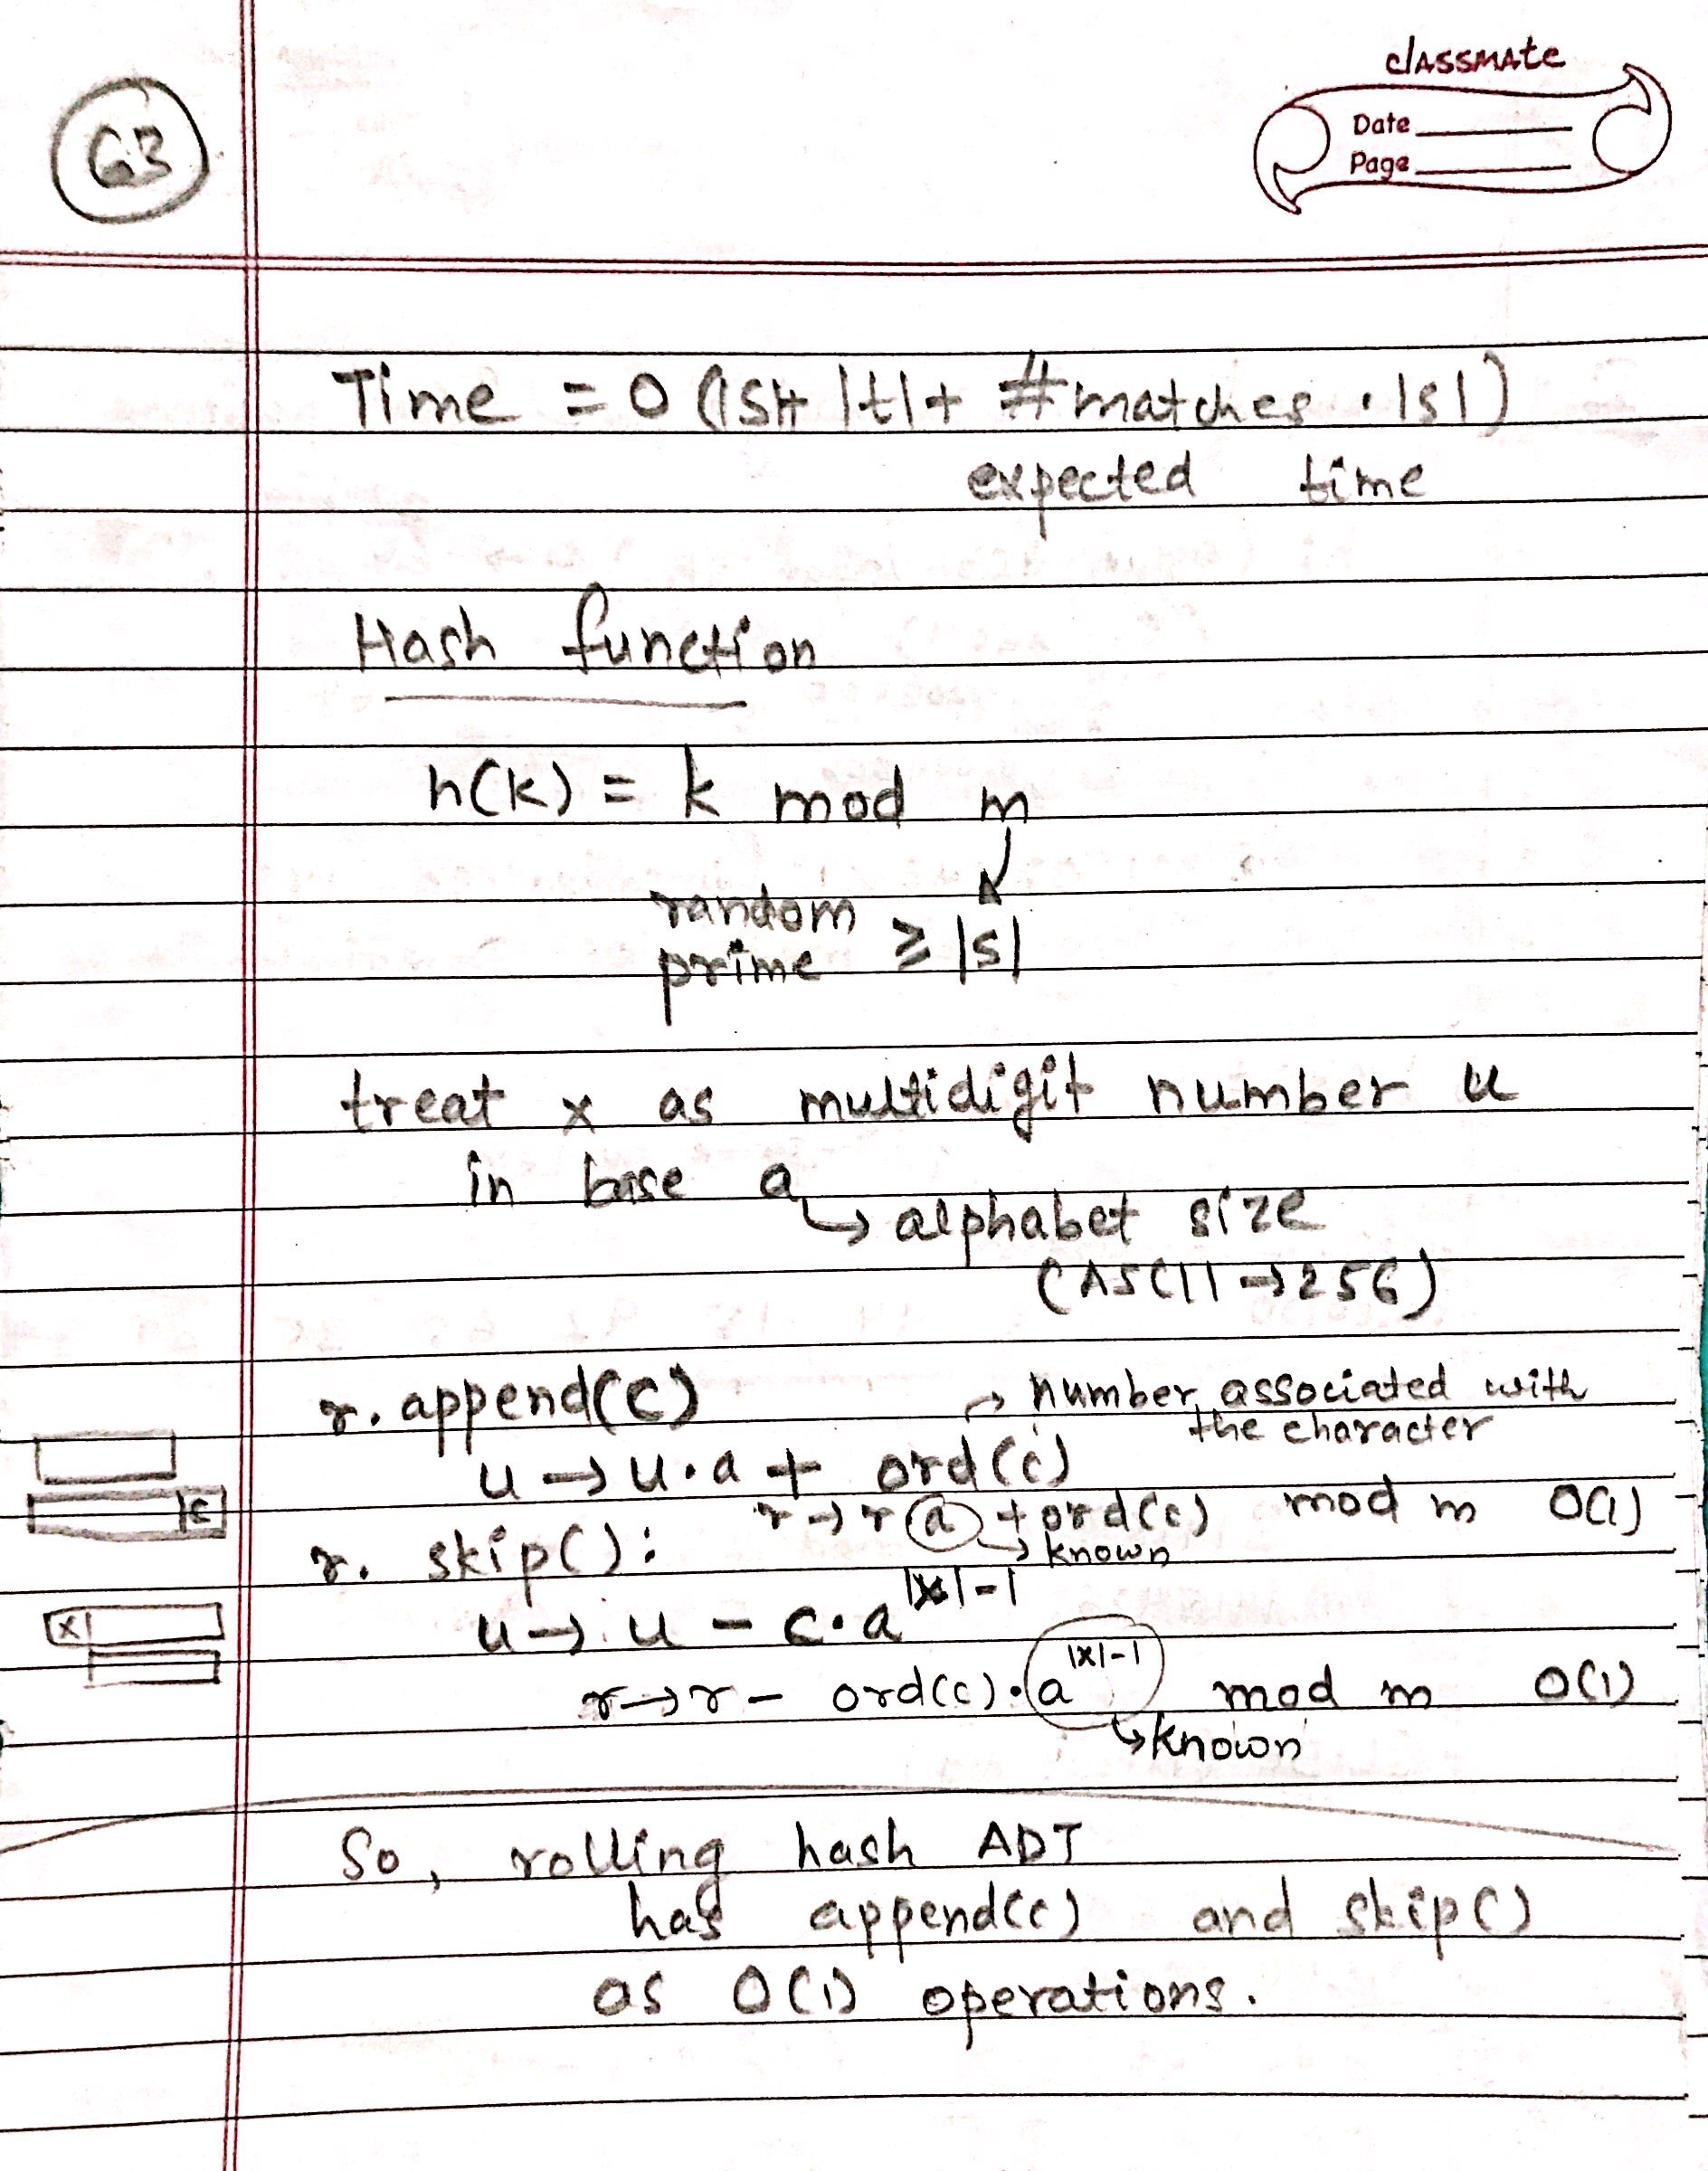 63
classmate
Date
Page
Time = O(|s|+ |t|+ #matches · |s|)
expected time
Hash function
h(k) = k mod m
random
prime ≥ |s|
treat x as multidigit number u
in base a
↳ alphabet size
(ASCII → 256)
r. append(c) → number associated with
the character
u → u·a + ord(c)
c
r → r a + ord(c) mod m O(1)
r. skip(): ↳ known
x u → u - c·a^|x|-1
r → r - ord(c)·a^|x|-1 mod m O(1)
↳ known
So, rolling hash ADT
has append(c) and skip()
as O(1) operations.